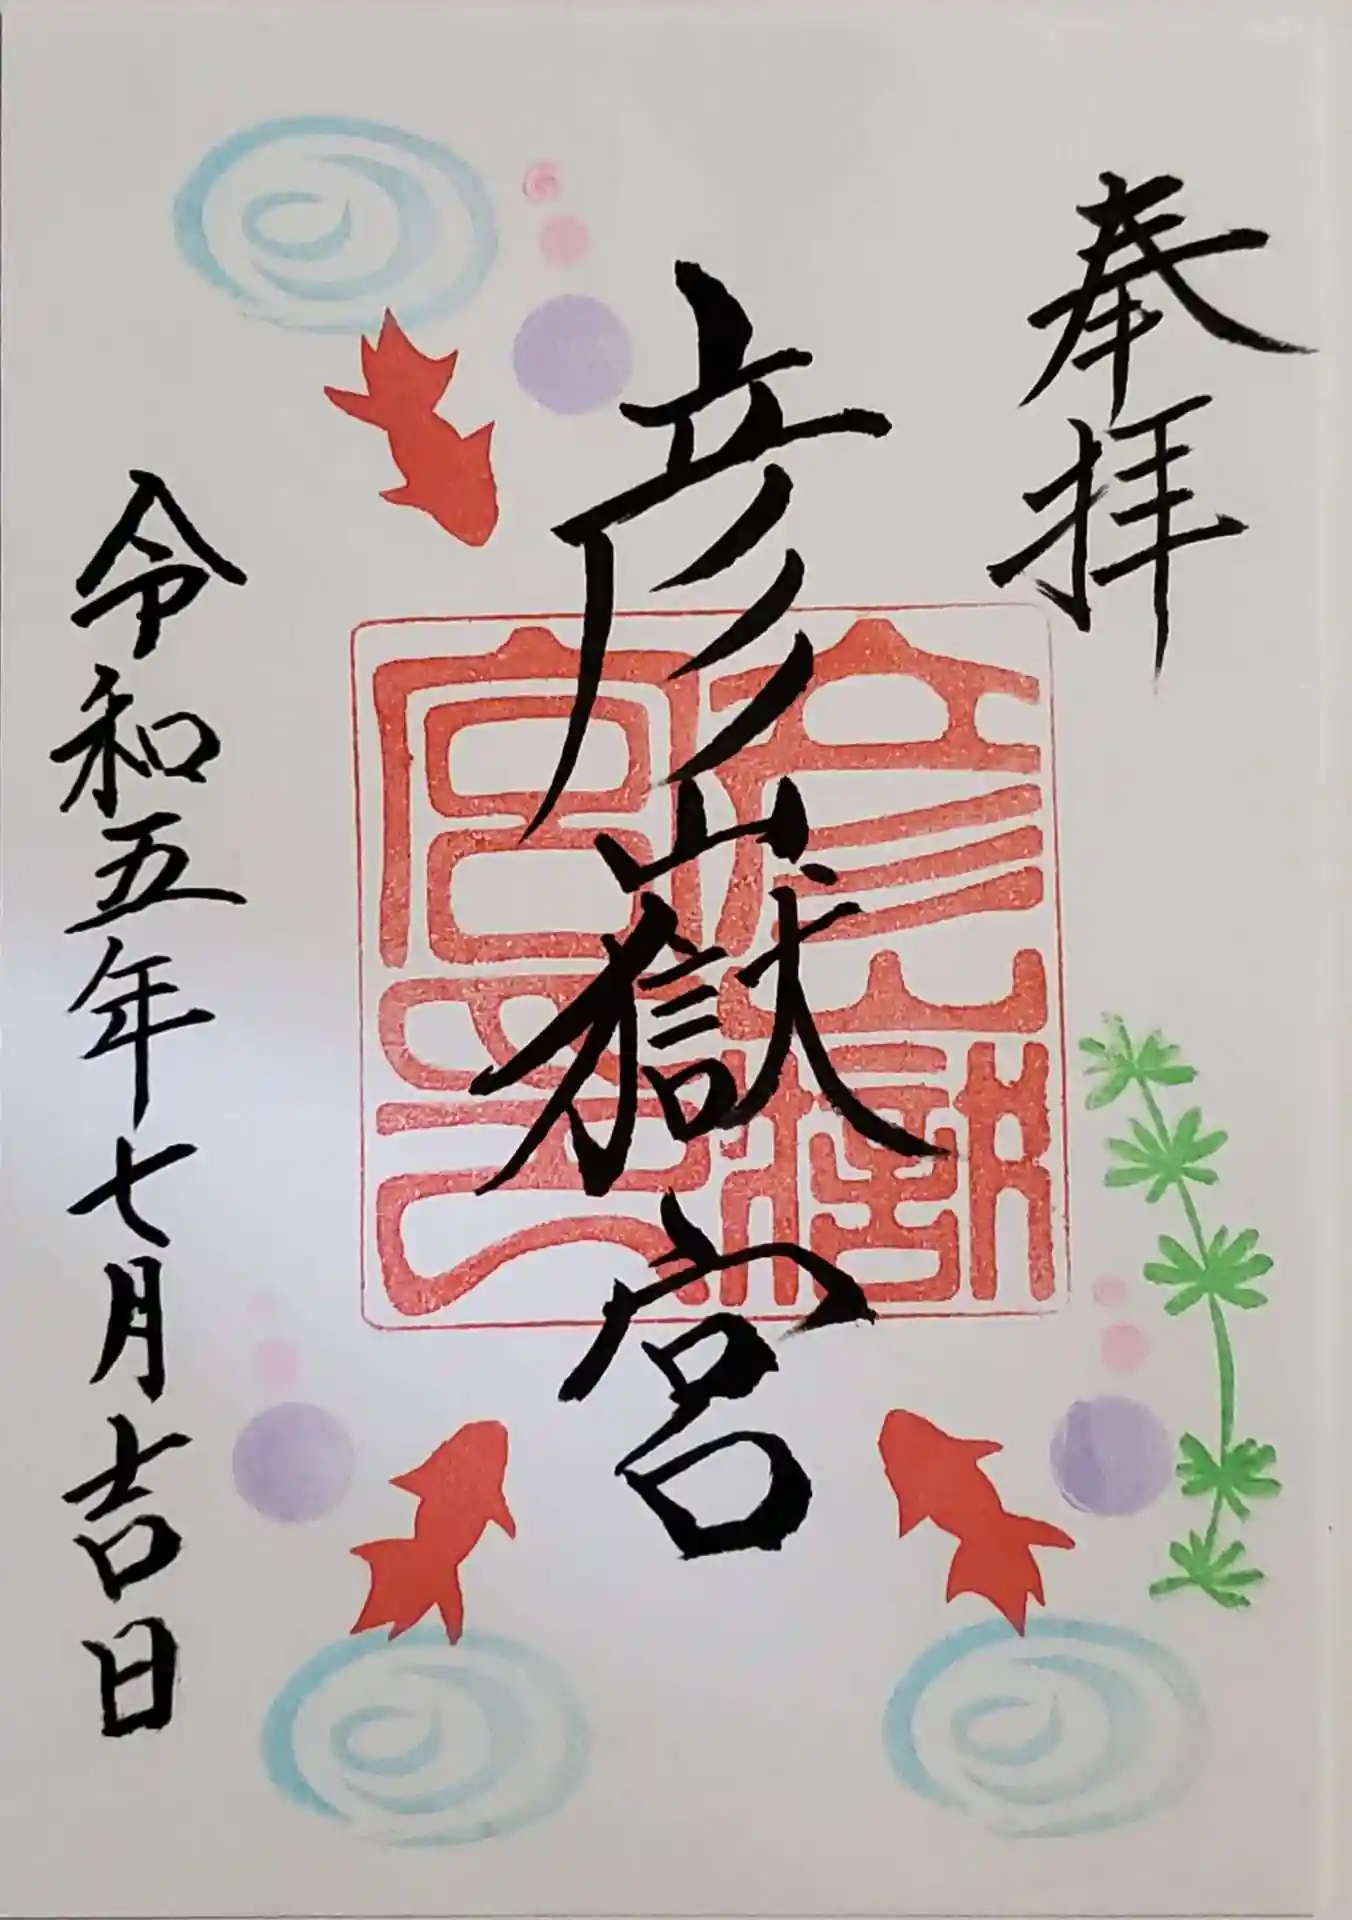 奉拝
彦嶽宮
令和五年七月吉日